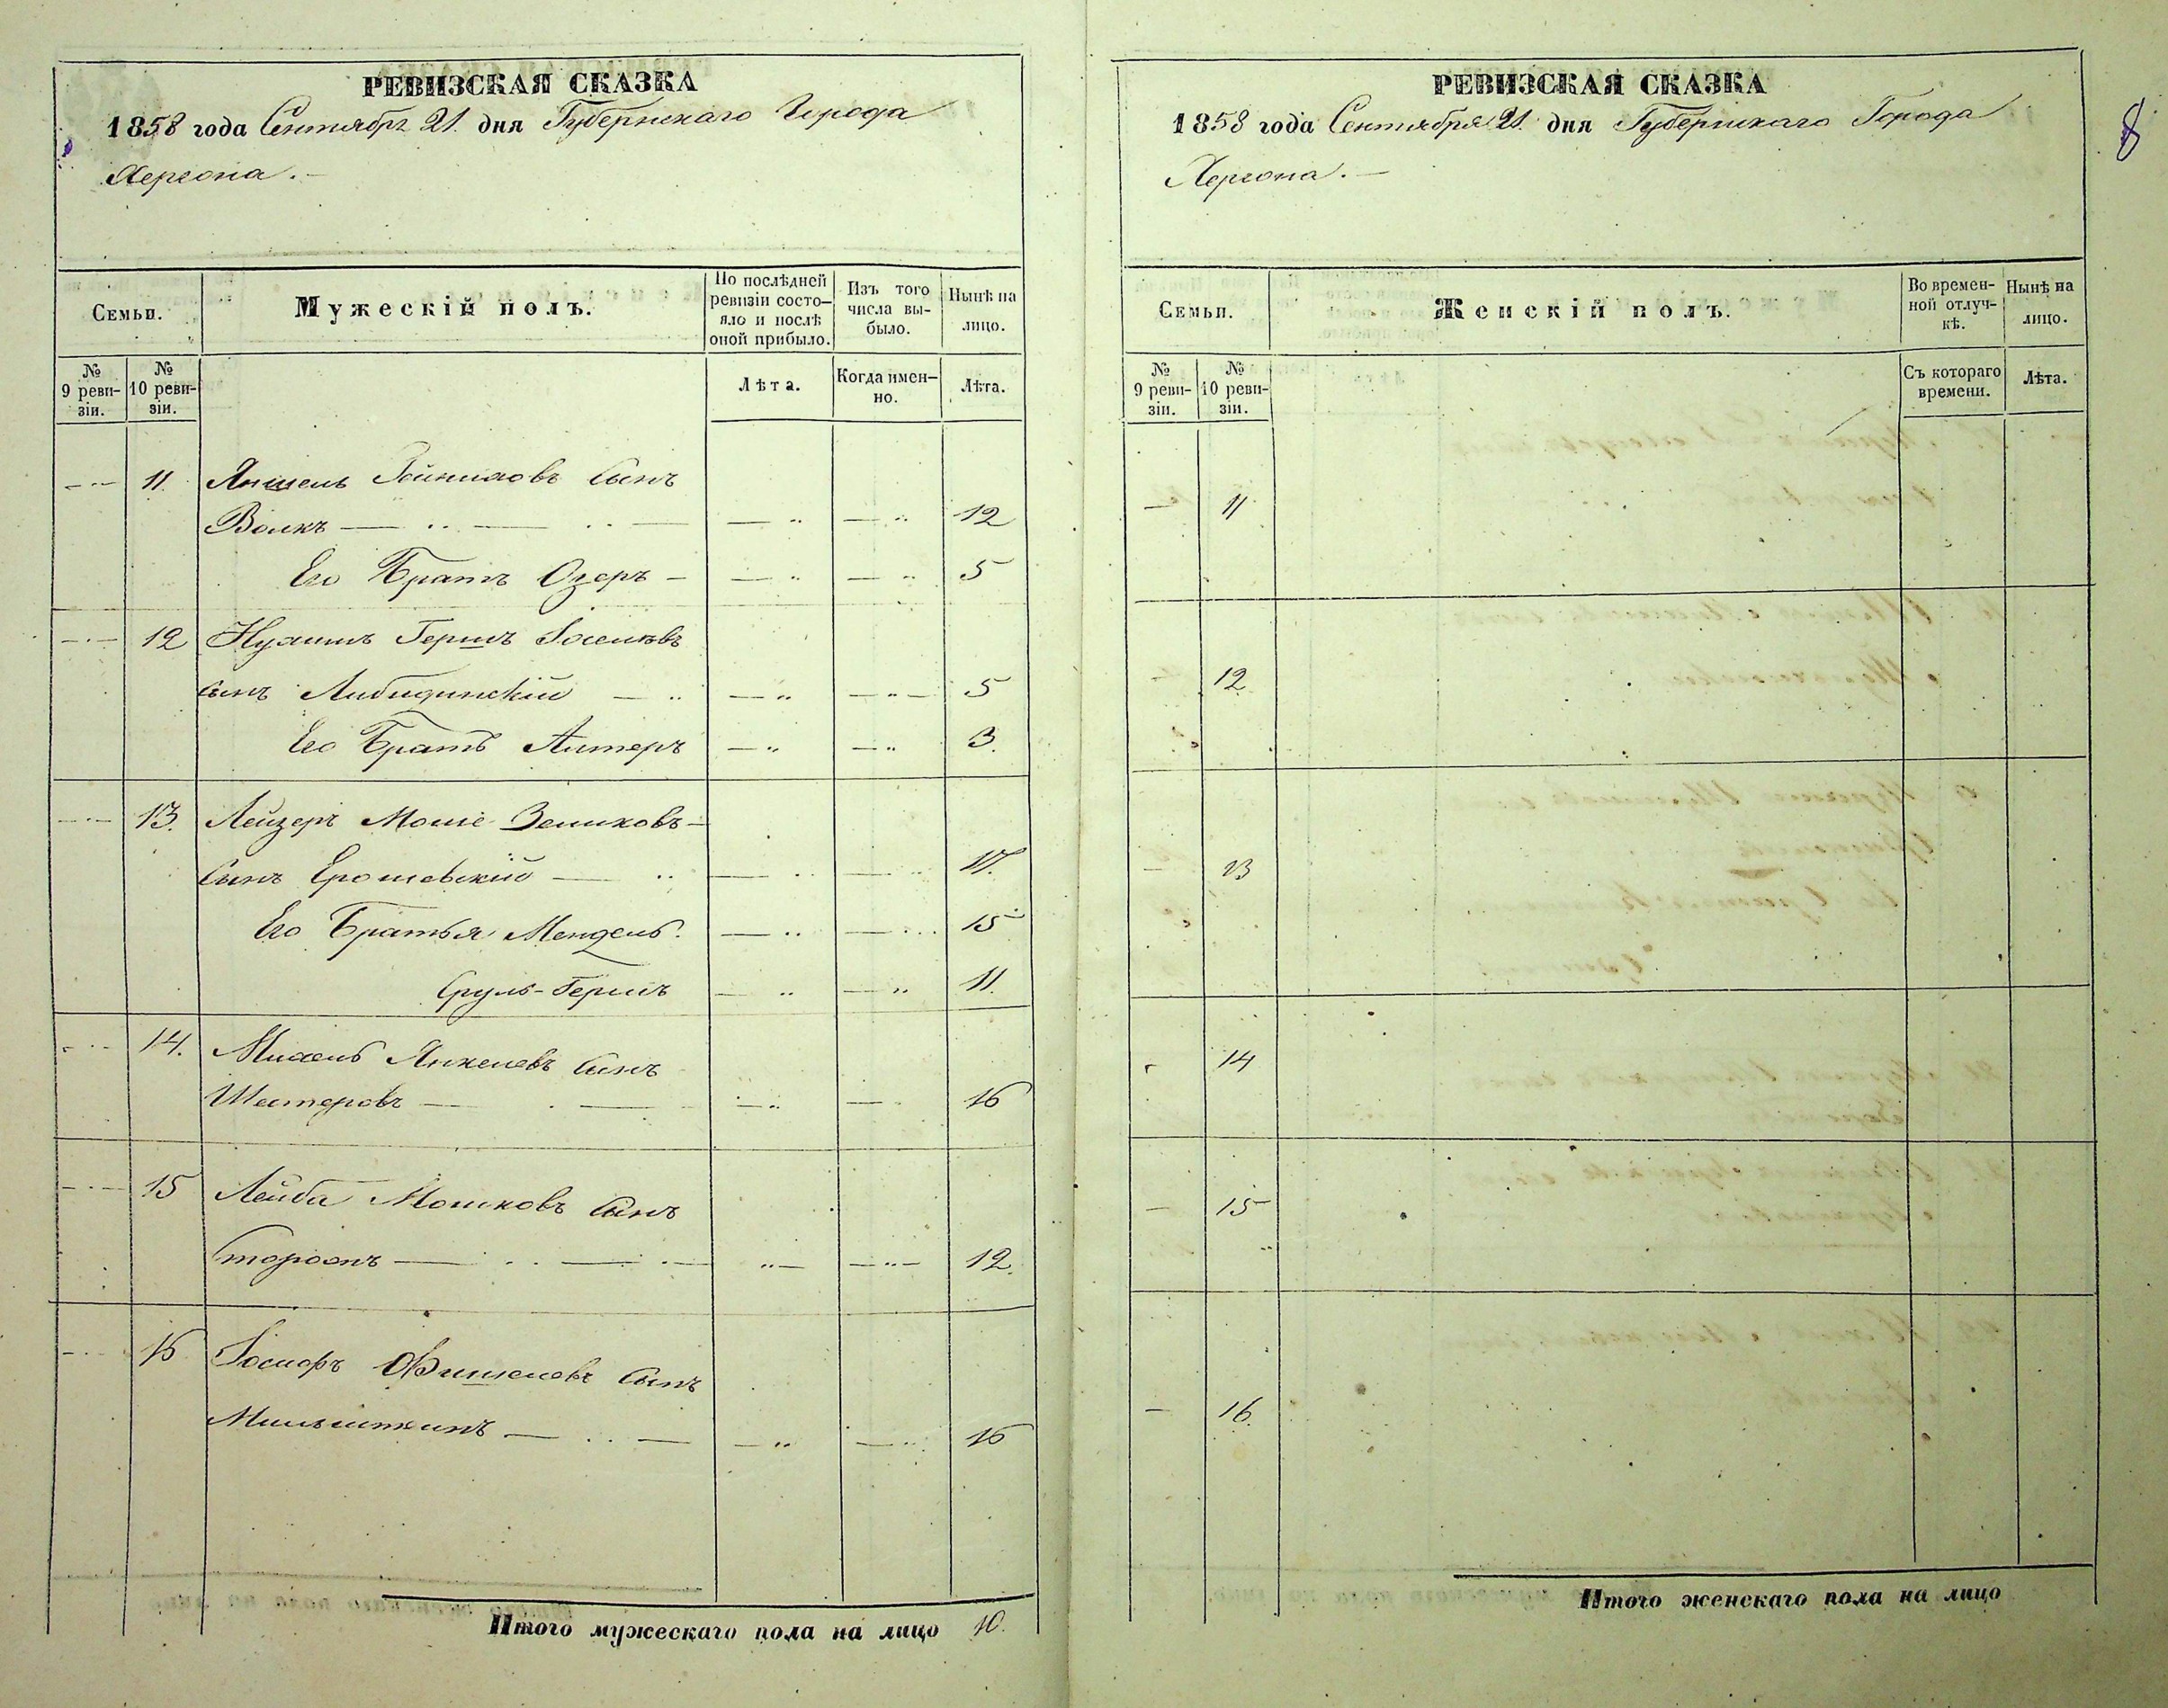 РЕВИЗСКАЯ СКАЗКА
1858 года Сентября 21. дня Губернскаго Города
Херсона.
Семьи.
Мужескій полъ.
По послѣдней ревизіи состо-
яло и послѣ оной прибыло.
Изъ того числа вы-
было.
Нынѣ на лицо.
№ 9 реви-
зіи.
№ 10 реви-
зіи.
Лѣта.
Когда имен-
но.
Лѣта.
11. Аншель сынъ
Волкъ 12
Его Братъ Озеръ 5
12 Нухимъ Гершъ
сынъ 5
Его Братъ Алтеръ 3.
13. Лейзеръ Моше Зелиховъ
Сынъ Ерошевскій 17.
Его Братья Мендель. 15
Сруль-Гершъ 11.
14. Михель Янкелевъ сынъ
Шестеровъ 16
15 Лейба Мошковъ сынъ
12.
16 Іосифъ Фишелевъ сынъ
16
Итого мужескаго пола на лицо 10.
РЕВИЗСКАЯ СКАЗКА
1858 года Сентября 21. дня Губернскаго Города
Херсона.
8
Семьи.
Женскій полъ.
Во времен-
ной отлуч-
кѣ.
Нынѣ на лицо.
№ 9 реви-
зіи.
№ 10 реви-
зіи.
Съ котораго времени.
Лѣта.
11
12
13
14
15
16.
Итого женскаго пола на лицо